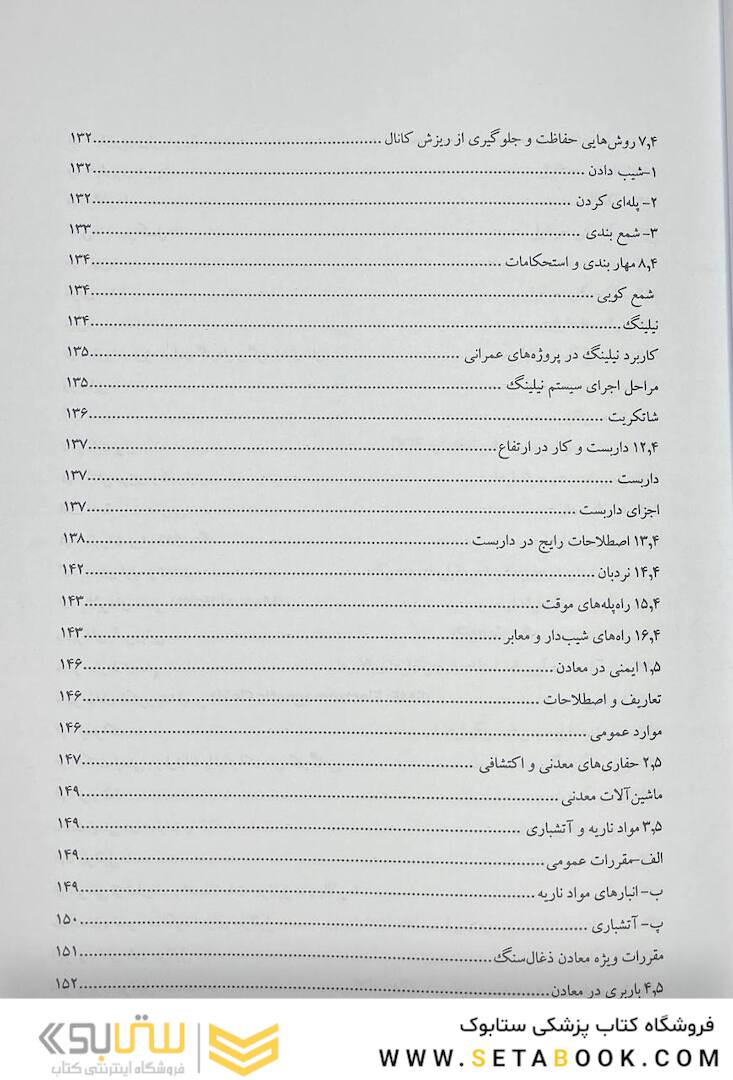 ۷٫۴ روش‌هایی حفاظت و جلوگیری از ریزش کانال ........ ۱۳۲
۱-شیب دادن ........ ۱۳۲
۲- پله‌ای کردن ........ ۱۳۲
۳- شمع بندی ........ ۱۳۳
۸٫۴ مهار بندی و استحکامات ........ ۱۳۴
شمع کوبی ........ ۱۳۴
نیلینگ ........ ۱۳۴
کاربرد نیلینگ در پروژه‌های عمرانی ........ ۱۳۵
مراحل اجرای سیستم نیلینگ ........ ۱۳۵
شاتکریت ........ ۱۳۶
۱۲٫۴ داربست و کار در ارتفاع ........ ۱۳۷
داربست ........ ۱۳۷
اجزای داربست ........ ۱۳۷
۱۳٫۴ اصطلاحات رایج در داربست ........ ۱۳۸
۱۴٫۴ نردبان ........ ۱۴۲
۱۵٫۴ راه‌پله‌های موقت ........ ۱۴۳
۱۶٫۴ راه‌های شیب‌دار و معابر ........ ۱۴۳
۱٫۵ ایمنی در معادن ........ ۱۴۶
تعاریف و اصطلاحات ........ ۱۴۶
موارد عمومی ........ ۱۴۶
۲٫۵ حفاری‌های معدنی و اکتشافی ........ ۱۴۷
ماشین‌آلات معدنی ........ ۱۴۹
۳٫۵ مواد ناریه و آتشباری ........ ۱۴۹
الف-مقررات عمومی ........ ۱۴۹
ب- انبارهای مواد ناریه ........ ۱۴۹
پ- آتشباری ........ ۱۵۰
مقررات ویژه معادن ذغال‌سنگ ........ ۱۵۱
۴٫۵ باربری در معادن ........ ۱۵۲
فروشگاه کتاب پزشکی ستابوک
WWW.SETABOOK.COM
ستابوک
فروشگاه اینترنتی کتاب